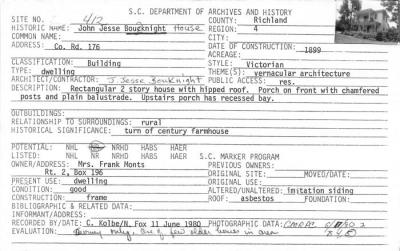 S.C. DEPARTMENT OF ARCHIVES AND HISTORY
SITE NO. 412 COUNTY: Richland
HISTORIC NAME: John Jesse Bouknight House REGION: 4
COMMON NAME: CITY:
ADDRESS: Co. Rd. 176 DATE OF CONSTRUCTION: 1899
ACREAGE:
CLASSIFICATION: Building STYLE: Victorian
TYPE: dwelling THEME(S): vernacular architecture
ARCHITECT/CONTRACTOR: J. Jesse Bouknight PUBLIC ACCESS: res.
DESCRIPTION: Rectangular 2 story house with hipped roof. Porch on front with chamfered
posts and plain balustrade. Upstairs porch has recessed bay.
OUTBUILDINGS:
RELATIONSHIP TO SURROUNDINGS: rural
HISTORICAL SIGNIFICANCE: turn of century farmhouse
POTENTIAL: NHL NR NRHD HABS HAER
LISTED: NHL NR NRHD HABS HAER S.C. MARKER PROGRAM
OWNER/ADDRESS: Mrs. Frank Monts PREVIOUS OWNERS:
Rt. 2, Box 196 ORIGINAL SITE: MOVED/DATE:
PRESENT USE: dwelling ORIGINAL USE:
CONDITION: good ALTERED/UNALTERED: imitation siding
CONSTRUCTION: frame ROOF: asbestos FOUNDATION:
BIBLIOGRAPHIC & RELATED DATA:
INFORMANT/ADDRESS:
RECORDED BY/DATE: C. Kolbe/N. Fox 11 June 1980 PHOTOGRAPHIC DATA:
EVALUATION: only, one of few older homes in area